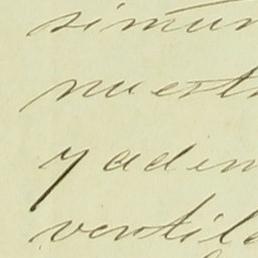 simun
nuestr
y adem
ventila